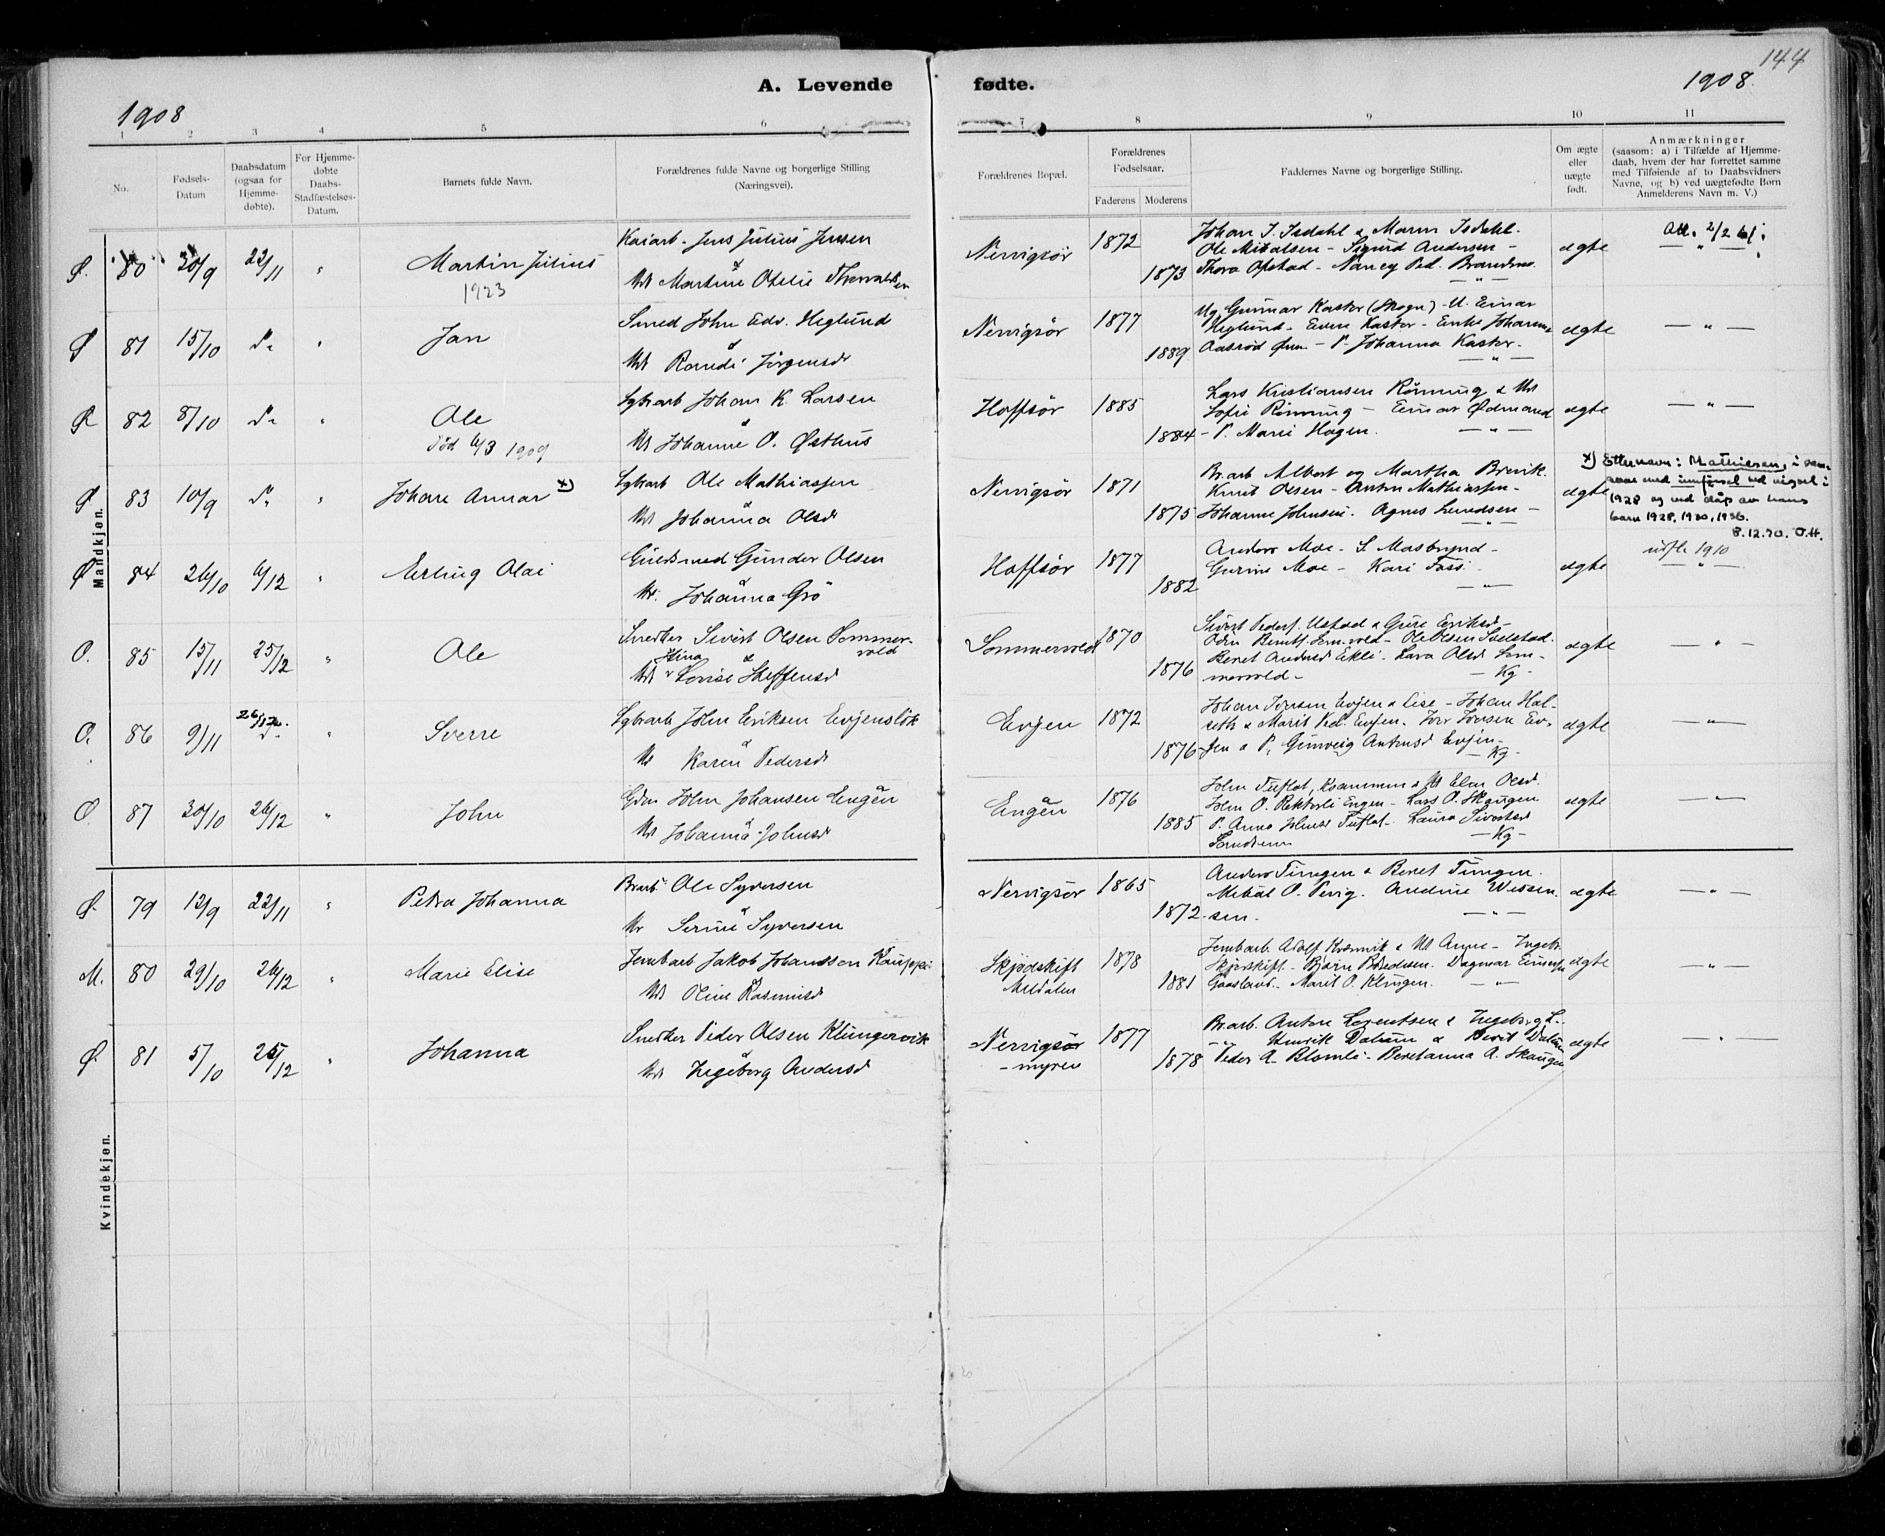 144
A. Levende fødte.
1908
1908.
1 2 3 4 5 6 7 8 9 10 11
No.
Fødsels-
Datum
Daabsdatum
(ogsaa for
Hjemme-
døbte).
For Hjemme-
døbte
Daabs-
Stadfæstelses-
Datum.
Barnets fulde Navn.
Forældrenes fulde Navne og borgerlige Stilling
(Næringsvei).
Forældrenes Bopæl.
Forældrenes
Fødselsaar.
Faderens Moderens
Faddernes Navne og borgerlige Stilling.
Om ægte
eller
uægte
født.
Anmærkninger
(saasom: a) i Tilfælde af Hjemme-
daab, hvem der har forrettet samme
med Tilføiende af to Daabsvidners
Navne, og b) ved uægtefødte Børn
Anmelderens Navn m. V.)
Mandkjøn.
Ø. 80 30/9 22/11 " Martin Julius
1923
Kaiarb. Jens Julius Jensen
&
Martine Otelie Thorvaldsen
Nervigsør 1872
1873
Johan J. Isdahl & Maren Isdahl.
Ole Mikalsen - Sigurd Andersen -
Thora Opstad - Nancy Ped.
ægte
Att. 2/2 61.
— " —
Ø 81 15/10 d. " Jan
Smed John Edv. Heglund
&
Randi Jörgensd
Nervigsør 1877
1889
Ug. Gunnar Kaster (Skogn) - U. Einar
Heglund - Edvin Kaster - Enke Johanna
Aasrød - P. Johanna Kaster.
ægte — " —
Ø 82 8/10 d. " Ole
Død 6/3 1909
Sgbrarb Johan K. Larsen
&
Johanne O. Østhus
Hoffsør 1885
1884
Lars Kristiansen Rønning &
Sofie Rønning - Einar Ødmand
- P. Marie Hagen. — " —
ægte — " —
Ø 83 10/9 d. " Johan Annar x)
Sgbrarb Ole Mathiassen
&
Johanna Olsd
Nervigsør 1871
1875
Br.arb Albert og Martha Brevik.
Knut Olsen - Anton Mathiassen -
Johanne Johnsen. Agnes Lundsen -
ægte
x) Etternavn: Mathiesen, i sam-
svar med innførsel ved vigsel i
1928 og ved dåp av hans
barn 1928, 1930, 1936.
8.12.70. O.H.
Ø 84 26/10 6/12 " Erling Olai
Guldsmed Gunder Olsen
&
Johanna Grö
Hoffsør 1877
1882
Anders Moe - S. Mosbrynd -
Gurine Moe - Kari Foss. — " —
ægte
udfl. 1910
— " —
O. 85 15/11 25/12 " Ole
Snedker Sivert Olsen Sommer-
vold
Stina &
Lovise Steffensd
Sommervold 1870
1876
Sivert Pedersf. Ustad & Gure Eriksd -
Odin Berntf. Somvold - Ole Olsen Sølstad.
Beret Andersd Ekli - Lava Olsd Som-
mervold - — Kg —
ægte — " —
O. 86 9/11 26/12 " Sverre
Sgbrarb John Eriksen Evjensløk
&
Karen Pedersd
Evjen 1872
1876
Johan Jonsen Evjen & Lise - Johan Hal-
seth & Marit Ped. Evjen. Iver Jonsen Ev-
jen & P. Gunveig Antonsd Evjen - — Kg —
ægte — " —
O 87 30/10 26/12 " John
Gdm John Johansen Engan
&
Johanna Johnsd
Engan 1876
1885
John Tuflat, & Elen Olsd.
John O. Rektorli Engen - Lars O. Skaugen
P. Anna Johnsd Tuflat - Laura Sivertsd
— Kg —
ægte — " —
Kvindekjøn.
Ø. 79 12/9 22/11 " Petra Johanna
Brarb Ole Syversen
&
Serine Syversen
Nervigsør 1865
1872
Anders Tingen & Beret Tingen.
Mikal O. Vevig. Andrine Wessen
sen. — " —
ægte — " —
M. 80 29/10 26/12 " Marie Elise
Jernbarb Jakob Johanssen Kauppi
Oline Rasmusd
Skjødskift
Meldalen
1878
1881
Jernbarb. Adolf Kvamvik & Anne - Ingebr.
Skjødskift - Bjarne Bødesen. Dagmar
Gaasland - Marit O. Klingen. — " —
ægte — " —
Ø. 81 5/10 25/12 Johanna
Snedker Peder Olsen Klingervik
Ingeborg Andersd
Nervigsør
- myren
1877
1878
Brarb. Anton Lorentsen & Ingeborg L.
Henrik Dalum & Berit Dalum
Peder A. Blomli - Beretanna A. Skaugen
ægte — " —